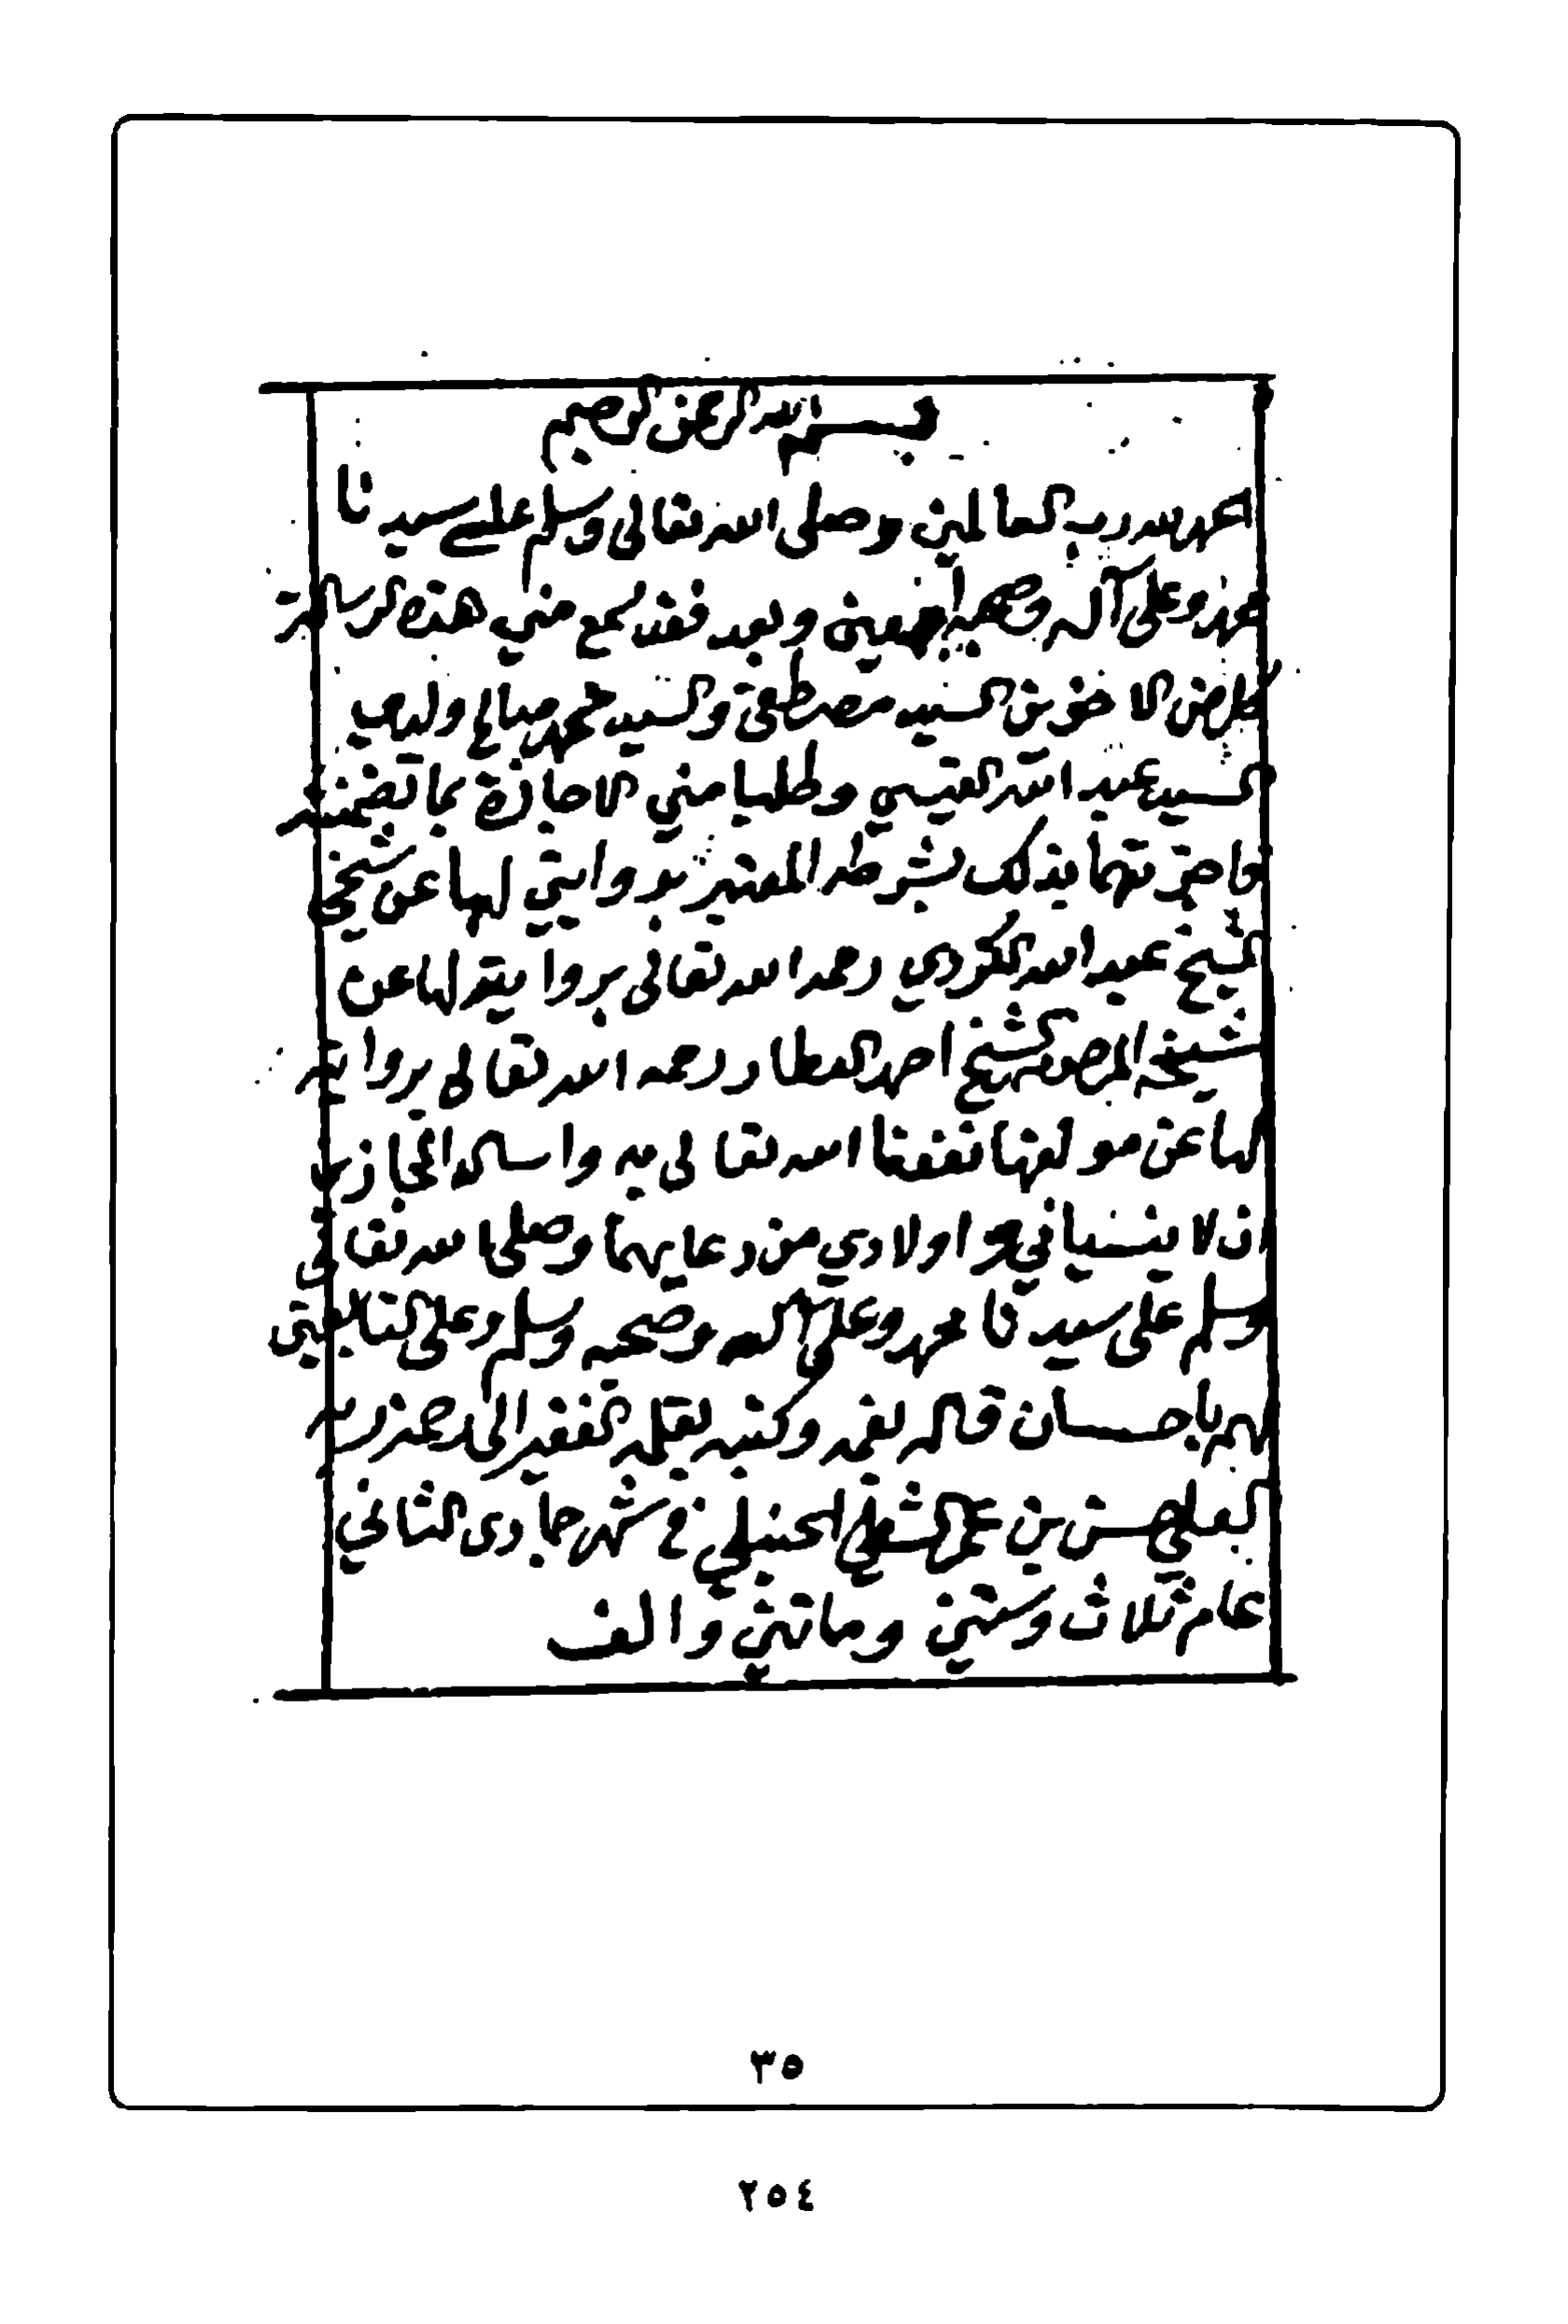 بسم الله الرحمن الرحيم
الحمد لله رب العالمين وصلى الله تعالى وسلم على سيدنا
محمد وعلى آله وصحبه أجمعين وبعد فقد سمع مني هذه الرسالة
الاخوين السيد مصطفى والسيد محمد صالح ولدي
السيد عبد الله وطلبا مني الاجازة بما تضمنته
فاجزتهما بذلك بشرطه المعتبر بروايتي لها عن شيخي
الشيخ عبد الله الكردي رحمه الله تعالى بروايته لها عن
شيخه الشيخ احمد العطار رحمه الله تعالى بروايته
لها عن مولفها نفعنا الله تعالى به واسال
ان لا ينسياني و اولادي من دعايهما وصلى الله تعالى
وسلم على سيدنا محمد وعلى اله وصحبه وسلم وعلى التابعين
لهم باحسان قاله بفمه وكتبه بقلمه الفقير الى رحمة ربه
العلي حسن بن عمر الشطي الحنبلي في شهر جمادى الثاني
عام ثلاث وستين ومائتين والف
٣٥
٢٥٤